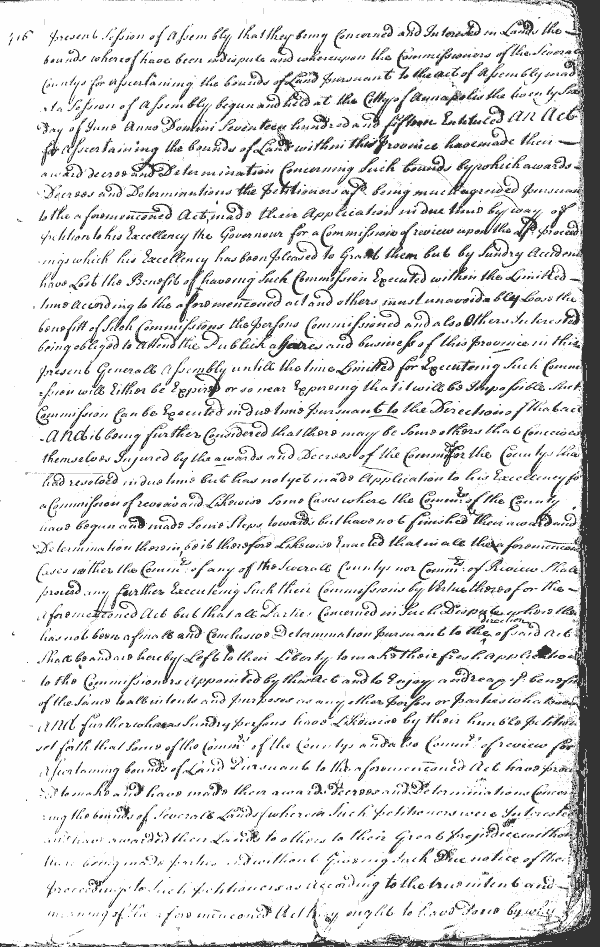 416 present Session of Assembly that they being Concerned and Interested in Lands the
bounds whereof have been in dispute and whereupon the Commissioners of the Severall
Countys for ascertaining the bounds of Land pursuant to the act of Assembly mad
at a Session of Assembly begun and held at the Citty of Annapolis the twenty
day of June Anno Domini Seventeen hundred and fifteen Entituled An Act
for Ascertaining the bounds of Land within this Province have made their
award decree and Determination Concerning Such bounds by which awards
Decrees and Determinations the petitioners afd. being much agrieved pursuan
to the aforementioned Act, made their Application in due time by way of
petition to his Excellency the Governour for a Commission of review upon the sd. proceed
ings which his Excellency has been pleased to Grant them but by Sundry Accidents
have Lost the Benefit of haveing Such Commission Executed within the Limitted
time According to the aforementioned act and others must unavoidably Loose the
benefitt of Such Commissions the persons Commissioned and also Others Interested
being obliged to attend the Publick affaires and business of this Province in this
present Generall Assembly untill the time Limited for Executeing Such Commi
ssion will Either be Expired or so near Expireing that it will be Impossible Such
Commission Can be Executed in due time pursuant to the Direction of that act
And it being further Considered that there may be Some others that Conceives
themselves Injured by the awards and Decrees of the Commrs. for the Countys tha
had resolved in due time but has not yet made Application to his Excellency fo
a Commission of review and Likewise Some Cases where the Commrs. of the County
have begun and made Some Steps towards but have not finished their award and
Determination therein be it therefore Likewise Enacted that in all the aforementioned
Cases neither the Commrs. of any of the Severall Countys nor Commrs. of Review Shall
proceed any further Executeing Such their Commissions by Virtue thereof or the
aforementioned Act but that all Parties Concerned in Such Dispute where there
has not been a finall and Conclusive Determination pursuant to the direction of said Act
Shall be and are hereby Left to their Liberty to make their fresh Application
to the Commissioners appointed by this Act and to Enjoy and reap ye. benefitt
of the Same to all intents and purposes as any other person or parties whatsoever
And further whereas Sundry persons have Likewise by their humble Petition
set forth that Some of the Commrs. of the Countys and also Commrs. of review for
Assertaining bounds of Land Pursuant to the aforementioned Act have proce
ed to make and have made their awards Decrees and Determinations Concer
ning the bounds of Severall Lands (wherein Such petitioners were Interested
and have awarded their Lands to others to their Great prejudice without
their being made parties and without Giveing Such Due notice of their
proceedings to Such petitioners as According to the true intent and
meaning of the aforementioned Act they ought to have done by